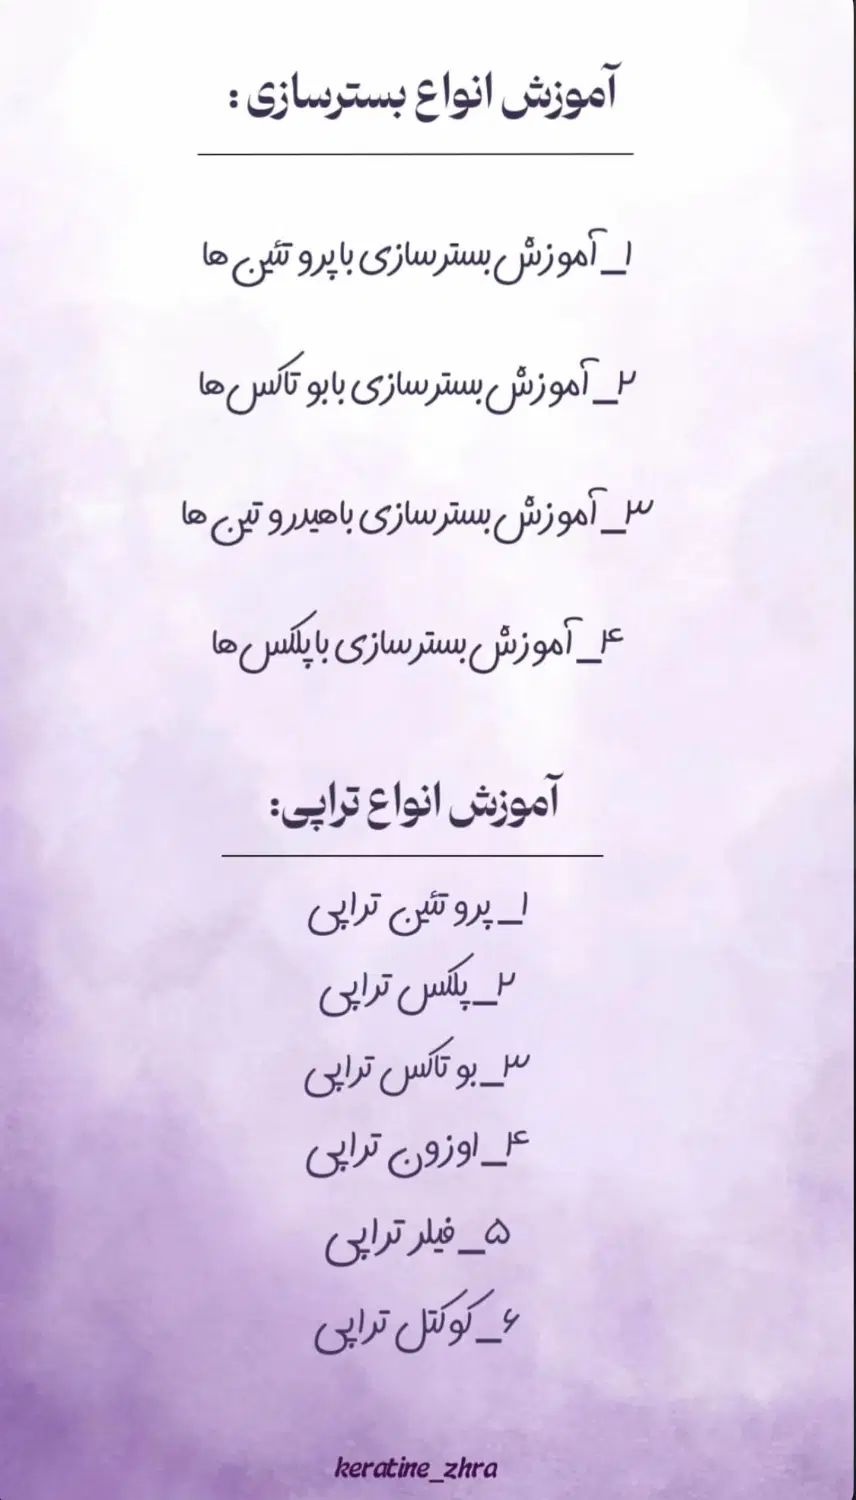 آموزش انواع بسترسازی :
۱_آموزش بسترسازی با پروتئین ها
۲_آموزش بسترسازی با بوتاکس ها
۳_آموزش بسترسازی با هیدروتین ها
۴_آموزش بسترسازی با پلکس ها
آموزش انواع تراپی:
۱_پروتئین تراپی
۲_پلکس تراپی
۳_بوتاکس تراپی
۴_اوزون تراپی
۵_فیلر تراپی
۶_کوکتل تراپی
keratine_zhra